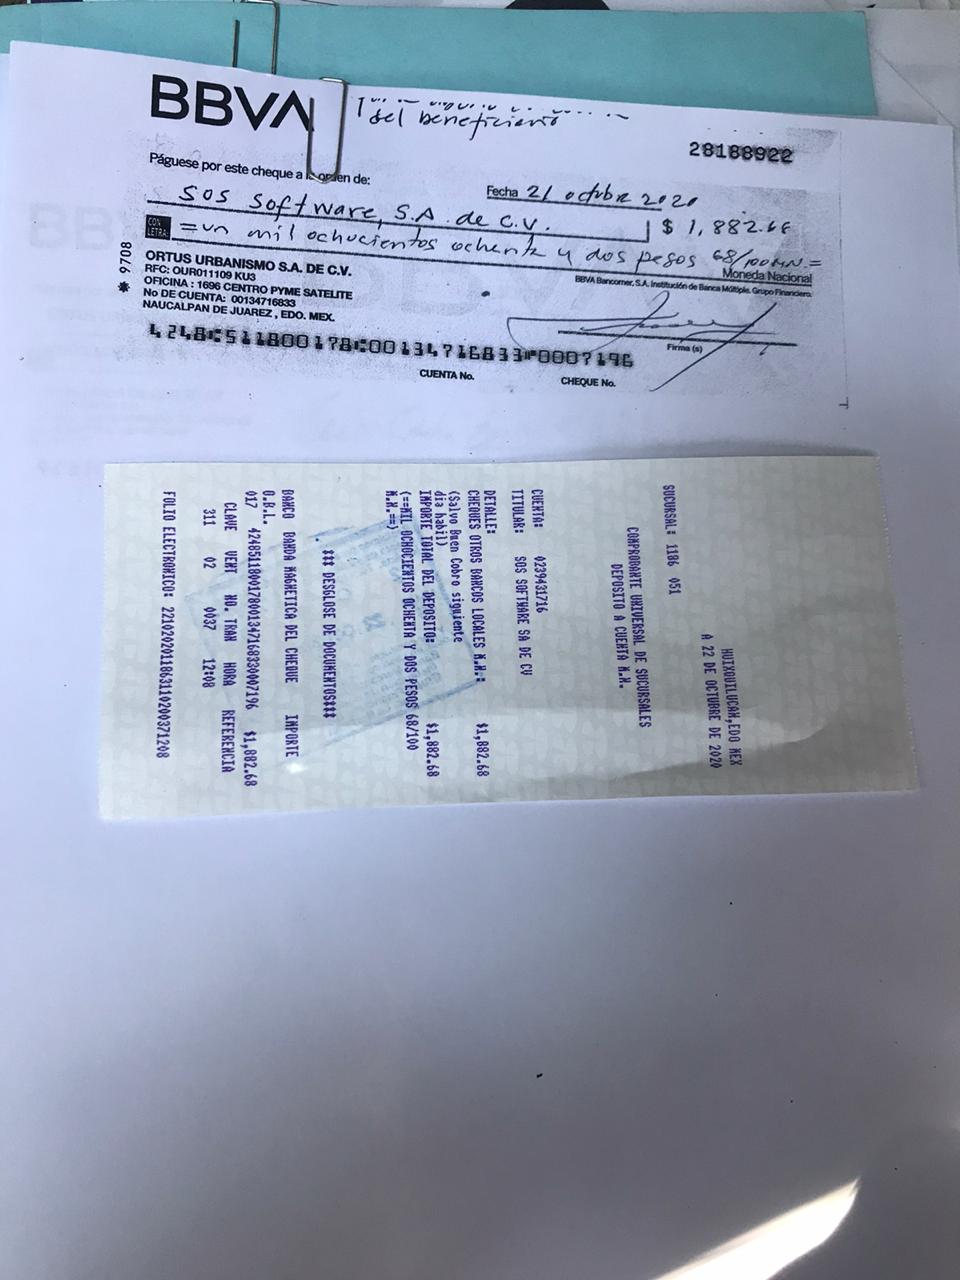 BBVA
del beneficiario
28188922
Páguese por este cheque a la orden de:
Fecha 21 octubre 2020
SOS Software, S.A. de C.V.
$ 1,882.68
CON LETRA:
= un mil ochocientos ochenta y dos pesos 68/100 MN =
Moneda Nacional
ORTUS URBANISMO S.A. DE C.V.
RFC: OUR011109 KU3
OFICINA : 1696 CENTRO PYME SATELITE
No DE CUENTA: 00134716833
NAUCALPAN DE JUAREZ , EDO. MEX.
BBVA Bancomer, S.A. Institución de Banca Múltiple. Grupo Financiero.
* 9708
Firma (s)
4248⑆511800178⑆00134716833⑈0007196
CUENTA No.
CHEQUE No.
HUIXQUILUCAN,EDO MEX
A 22 DE OCTUBRE DE 2020
SUCURSAL: 1186 051
COMPROBANTE UNIVERSAL DE SUCURSALES
DEPOSITO A CUENTA M.N.
CUENTA: 0239431716
TITULAR: SOS SOFTWARE SA DE CV
DETALLE:
CHEQUES OTROS BANCOS LOCALES M.N.: $1,882.68
(Salvo Buen Cobro siguiente
dia habil)
IMPORTE TOTAL DEL DEPOSITO: $1,882.68
(==MIL OCHOCIENTOS OCHENTA Y DOS PESOS 68/100
M.N.==)
*** DESGLOSE DE DOCUMENTOS***
BANCO BANDA MAGNETICA DEL CHEQUE IMPORTE
O.B.L.
017 4248511800178001347168330007196 $1,882.68
CLAVE VENT NO. TRAN HORA REFERENCIA
311 02 0037 12:08
FOLIO ELECTRONICO: 2210202011863110200371208